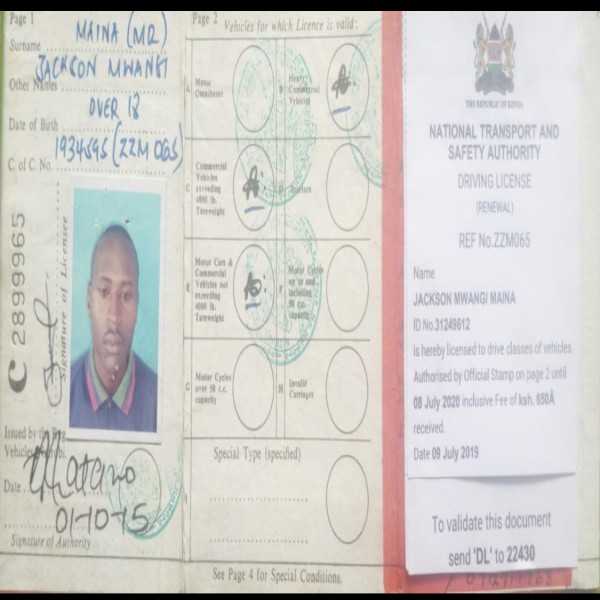 Page 1
MAINA (MR)
Surname
JACKSON MWANGI
Other Names
OVER 18
Date of Birth
1934595 (ZZM 065)
C. of C. No.
C 2899965
Signature of Licensee
Issued by the
Vehicles
Date
01-10-15
Signature of Authority
Page 2 Vehicles for which Licence is valid:
A Motor Omnibuses
B Heavy Commercial Vehicles
C Commercial Vehicles exceeding 4000 lb. Tareweight
D Tractors
E Motor Cars & Commercial Vehicles not exceeding 4000 lb. Tareweight
F Motor Cycles up to and including 50 c.c. capacity
G Motor Cycles over 50 c.c. capacity
H Invalid Carriages
Special Type (specified)
See Page 4 for Special Conditions.
THE REPUBLIC OF KENYA
NATIONAL TRANSPORT AND
SAFETY AUTHORITY
DRIVING LICENSE
(RENEWAL)
REF No.ZZM065
Name
JACKSON MWANGI MAINA
ID No.31249612
is hereby licensed to drive classes of vehicles
Authorised by Official Stamp on page 2 until
08 July 2020 inclusive Fee of ksh. 650Â
received.
Date 09 July 2019
To validate this document
send 'DL' to 22430